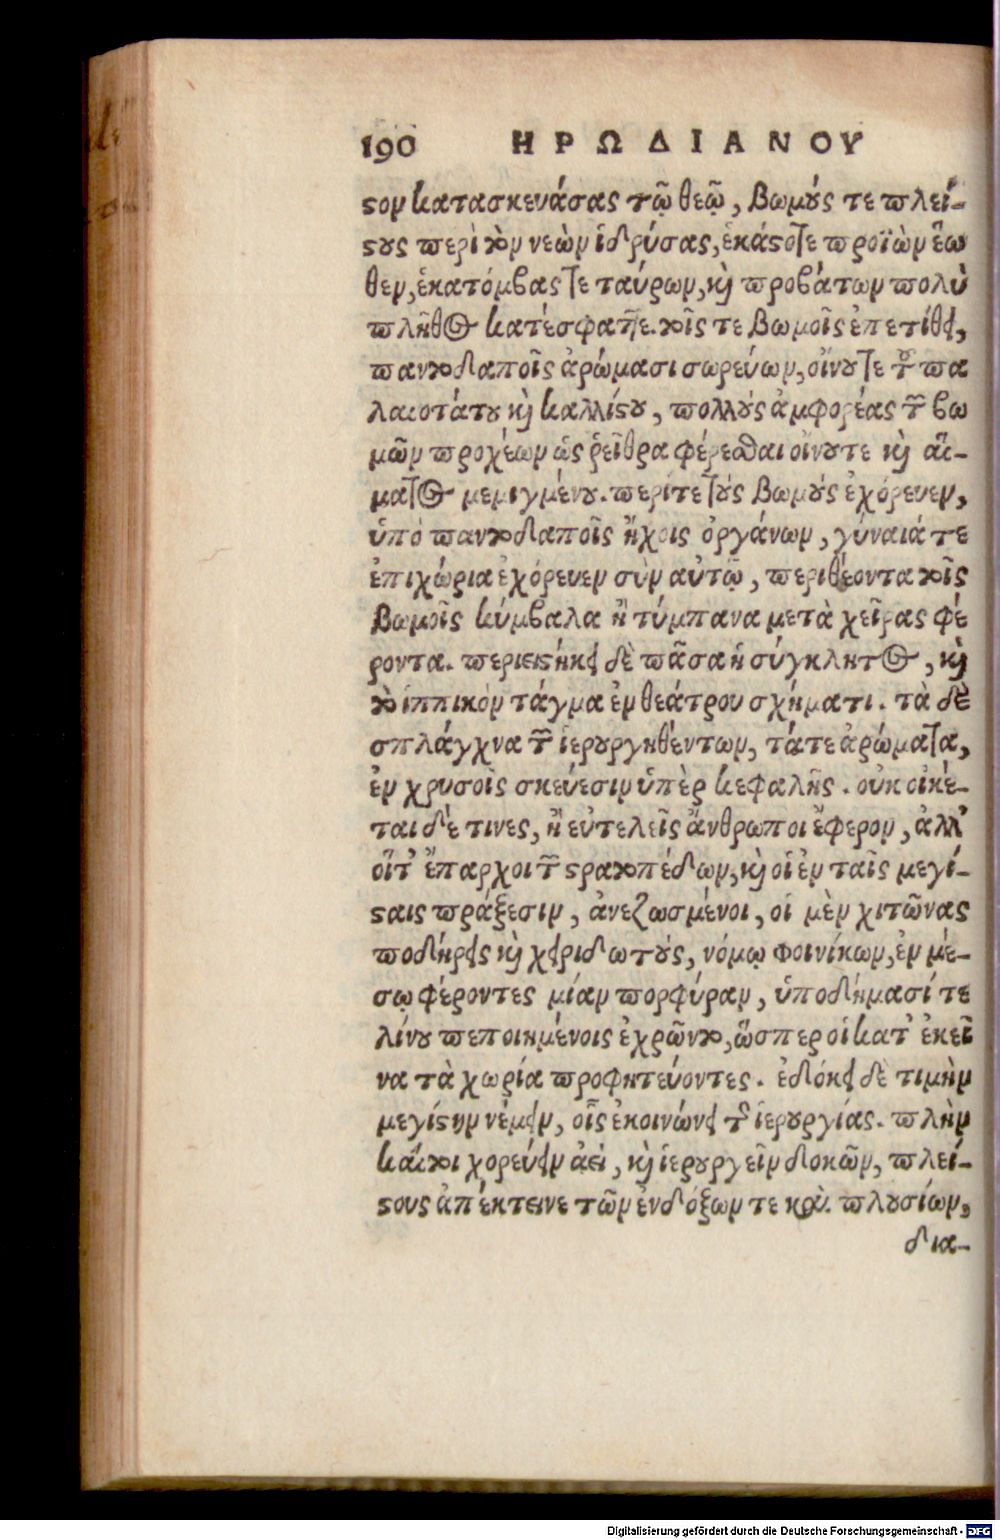 190 ΗΡΩΔΙΑΝΟΥ
ϛον κατασκευάσας τῷ θεῷ, βωμούς τε πλεί-
ϛους περὶ τὸν νεὼν ἱδρύσας, ἑκάϛοτε προϊὼν ἕω
θεν, ἑκατόμβας τε ταύρων, καὶ προβάτων πολὺ
πλῆθος κατέσφαττε. τοῖς τε βωμοῖς ἐπετίθει,
παντοδαποῖς ἀρώμασι σωρεύων, οἴνου τε τοῦ πα
λαιοτάτου καὶ καλλίϛου, πολλοὺς ἀμφορέας τῶν βω
μῶν προχέων ὡς ῥεῖθρα φέρεσθαι οἴνου τε καὶ αἵ-
ματος μεμιγμένου. περί τε τοὺς βωμοὺς ἐχόρευεν,
ὑπὸ παντοδαποῖς ἤχοις ὀργάνων, γύναιά τε
ἐπιχώρια ἐχόρευεν σὺν αὐτῷ, περιθέοντα τοῖς
βωμοῖς κύμβαλα ἢ τύμπανα μετὰ χεῖρας φέ
ροντα. περιειϛήκει δὲ πᾶσα ἡ σύγκλητος, καὶ
τὸ ἱππικὸν τάγμα ἐν θεάτρου σχήματι. τὰ δὲ
σπλάγχνα τῶν ἱερουργηθέντων, τά τε ἀρώματα,
ἐν χρυσοῖς σκεύεσιν ὑπὲρ κεφαλῆς. οὐκ οἰκέ-
ται δέ τινες, ἢ εὐτελεῖς ἄνθρωποι ἔφερον, ἀλλ'
οἵτ' ἔπαρχοι τῶν ϛρατοπέδων, καὶ οἱ ἐν ταῖς μεγί-
ϛαις πράξεσιν, ἀνεζωσμένοι, οἱ μὲν χιτῶνας
ποδήρεις καὶ χειριδωτοὺς, νόμῳ φοινίκων, ἐν μέ-
σῳ φέροντες μίαν πορφύραν, ὑποδήμασί τε
λίνου πεποιημένοις ἐχρῶντο, ὥσπερ οἱ κατ' ἐκεῖ
να τὰ χωρία προφητεύοντες. ἐδόκει δὲ τιμὴν
μεγίϛην νέμειν, οἷς ἐκοινώνει τῆς ἱερουργίας. πλὴν
καίτοι χορεύειν ἀεὶ, καὶ ἱερουργεῖν δοκῶν, πλεί-
ϛους ἀπέκτεινε τῶν ἐνδόξων τε καὶ πλουσίων,
δια-
Digitalisierung gefördert durch die Deutsche Forschungsgemeinschaft - DFG